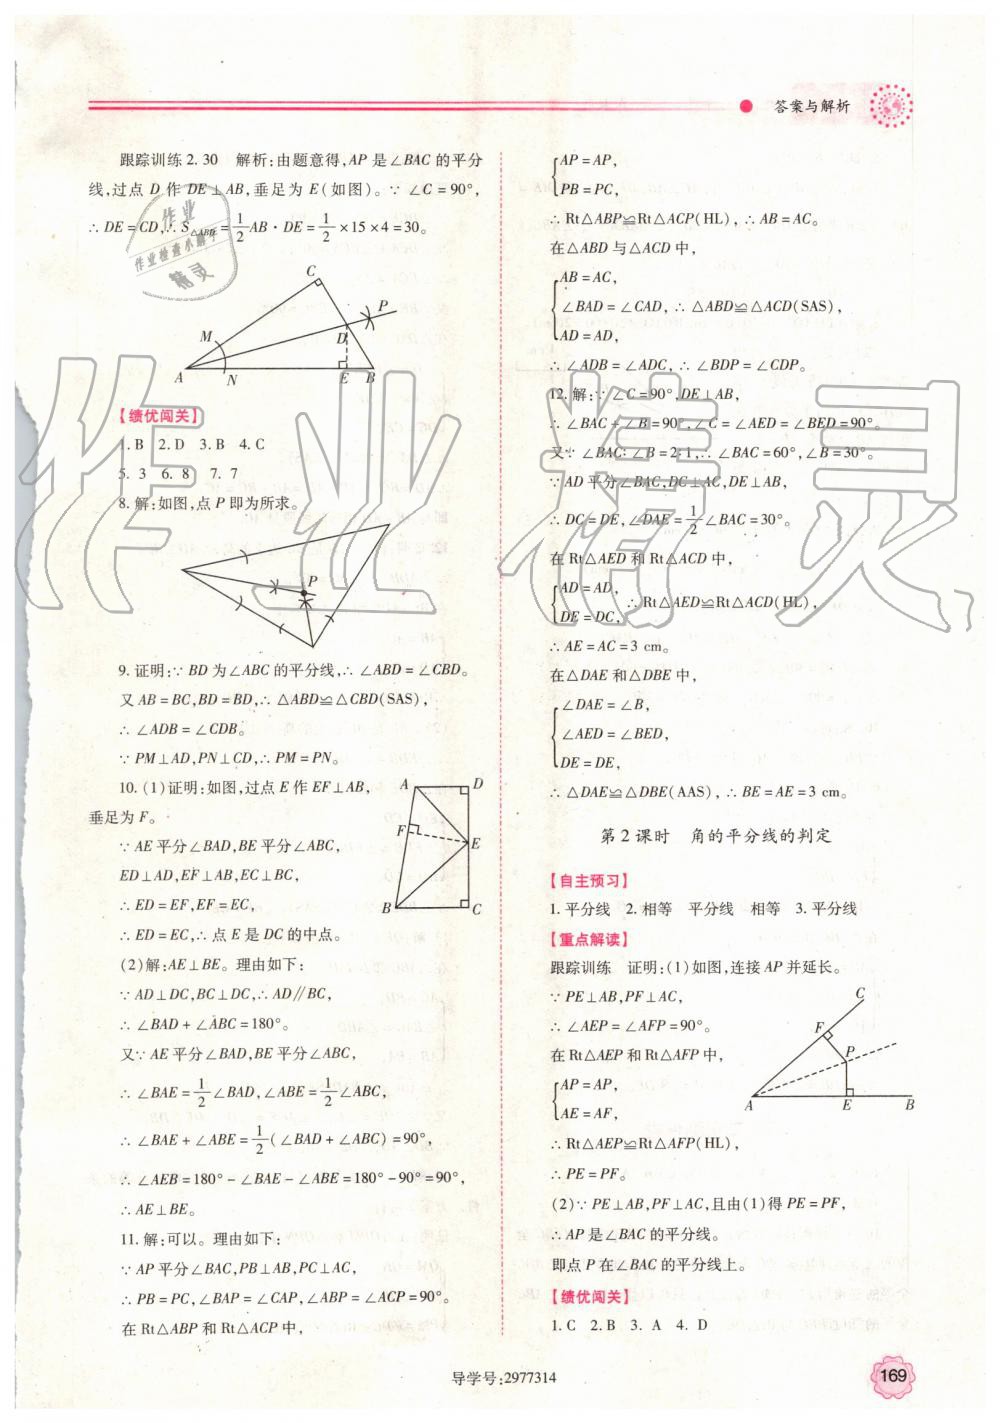 答案与解析
跟踪训练 2. 30　解析:由题意得,AP 是∠BAC 的平分
线,过点 D 作 DE⊥AB,垂足为 E(如图)。∵ ∠C=90°,
∴ DE=CD,∴ S△ABD=1/2AB·DE=1/2×15×4=30。
C
P
M
D
A
N
E
B
【绩优闯关】
1. B　2. D　3. B　4. C
5. 3　6. 8　7. 7
8. 解:如图,点 P 即为所求。
P
9. 证明:∵ BD 为∠ABC 的平分线,∴ ∠ABD=∠CBD。
又 AB=BC,BD=BD,∴ △ABD≌△CBD(SAS),
∴ ∠ADB=∠CDB。
∵ PM⊥AD,PN⊥CD,∴ PM=PN。
10. (1)证明:如图,过点 E 作 EF⊥AB,
垂足为 F。
∵ AE 平分∠BAD,BE 平分∠ABC,
ED⊥AD,EF⊥AB,EC⊥BC,
∴ ED=EF,EF=EC,
∴ ED=EC,∴ 点 E 是 DC 的中点。
A
D
F
E
B
C
(2)解:AE⊥BE。理由如下:
∵ AD⊥DC,BC⊥DC,∴ AD∥BC,
∴ ∠BAD+∠ABC=180°。
又∵ AE 平分∠BAD,BE 平分∠ABC,
∴ ∠BAE=1/2∠BAD,∠ABE=1/2∠ABC,
∴ ∠BAE+∠ABE=1/2(∠BAD+∠ABC)=90°,
∴ ∠AEB=180°-∠BAE-∠ABE=180°-90°=90°,
∴ AE⊥BE。
11. 解:可以。理由如下:
∵ AP 平分∠BAC,PB⊥AB,PC⊥AC,
∴ PB=PC,∠BAP=∠CAP,∠ABP=∠ACP=90°。
在 Rt△ABP 和 Rt△ACP 中,
AP=AP,
PB=PC,
∴ Rt△ABP≌Rt△ACP(HL),∴ AB=AC。
在△ABD 与△ACD 中,
AB=AC,
∠BAD=∠CAD,∴ △ABD≌△ACD(SAS),
AD=AD,
∴ ∠ADB=∠ADC,∴ ∠BDP=∠CDP。
12. 解:∵ ∠C=90°,DE⊥AB,
∴ ∠BAC+∠B=90°,∠C=∠AED=∠BED=90°。
又∵ ∠BAC∶∠B=2∶1,∴ ∠BAC=60°,∠B=30°。
∵ AD 平分∠BAC,DC⊥AC,DE⊥AB,
∴ DC=DE,∠DAE=1/2∠BAC=30°。
在 Rt△AED 和 Rt△ACD 中,
AD=AD,
DE=DC,∴ Rt△AED≌Rt△ACD(HL),
∴ AE=AC=3 cm。
在△DAE 和△DBE 中,
∠DAE=∠B,
∠AED=∠BED,
DE=DE,
∴ △DAE≌△DBE(AAS),∴ BE=AE=3 cm。
第 2 课时　角的平分线的判定
【自主预习】
1. 平分线　2. 相等　平分线　相等　3. 平分线
【重点解读】
跟踪训练　证明:(1)如图,连接 AP 并延长。
∵ PE⊥AB,PF⊥AC,
∴ ∠AEP=∠AFP=90°。
在 Rt△AEP 和 Rt△AFP 中,
AP=AP,
AE=AF,
∴ Rt△AEP≌Rt△AFP(HL),
∴ PE=PF。
C
F
P
A
E
B
(2)∵ PE⊥AB,PF⊥AC,且由(1)得 PE=PF,
∴ AP 是∠BAC 的平分线。
即点 P 在∠BAC 的平分线上。
【绩优闯关】
1. C　2. B　3. A　4. D
导学号:2977314
169
作业
作业检查小帮手
精灵
作业精灵